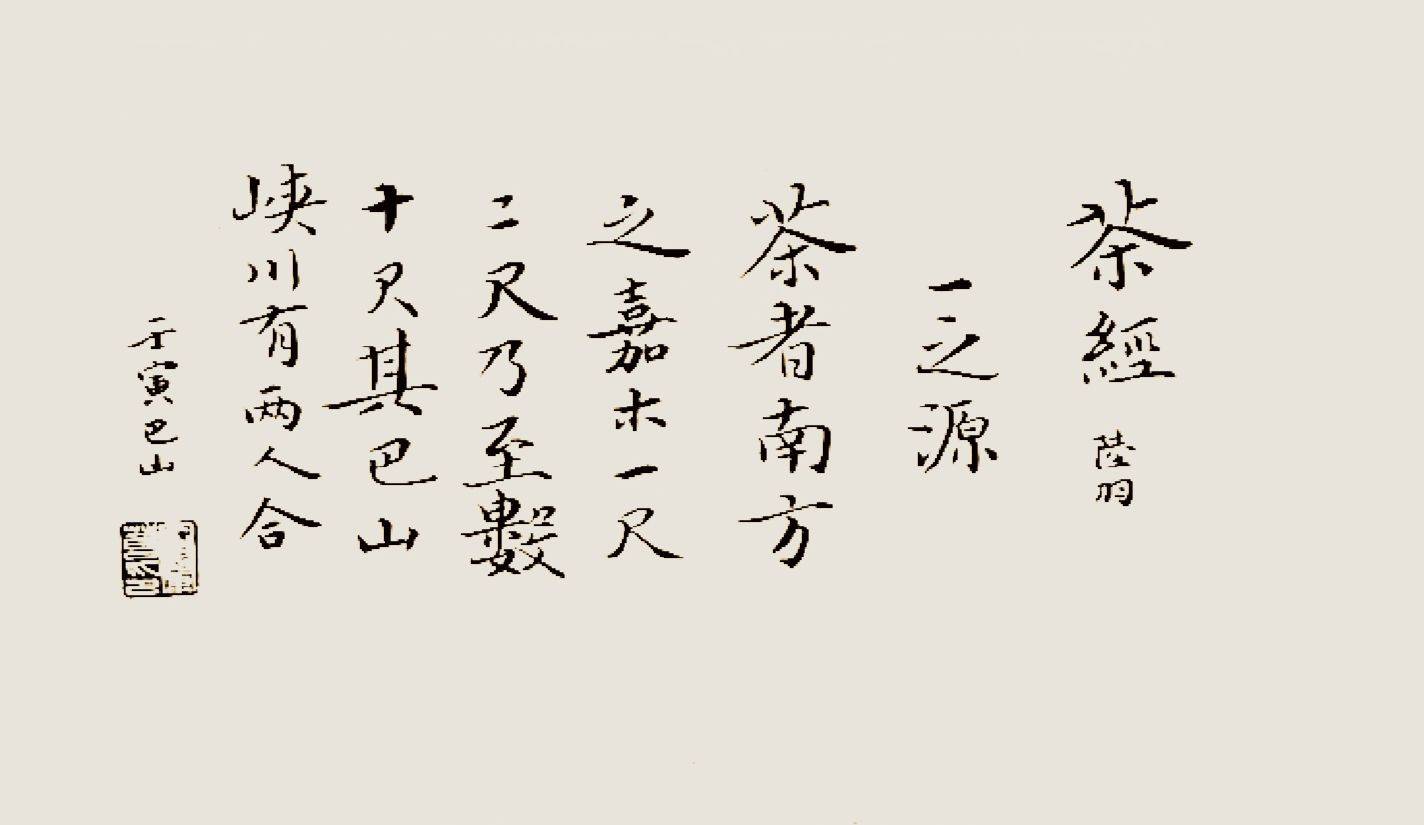 茶經 陸羽
一之源
茶者南方
之嘉木一尺
二尺乃至數
十尺其巴山
峽川有两人合
壬寅巴山